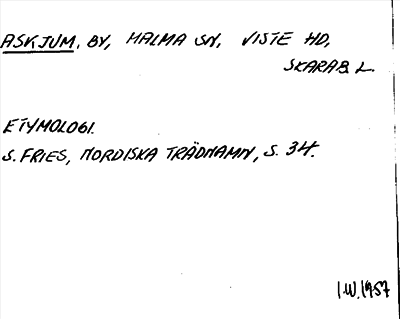 ASKJUM, BY, MALMA SN, VISTE HD,
SKARAB. L.
ETYMOLOGI.
S. FRIES, NORDISKA TRÄDNAMN, S. 34.
I.W.1957